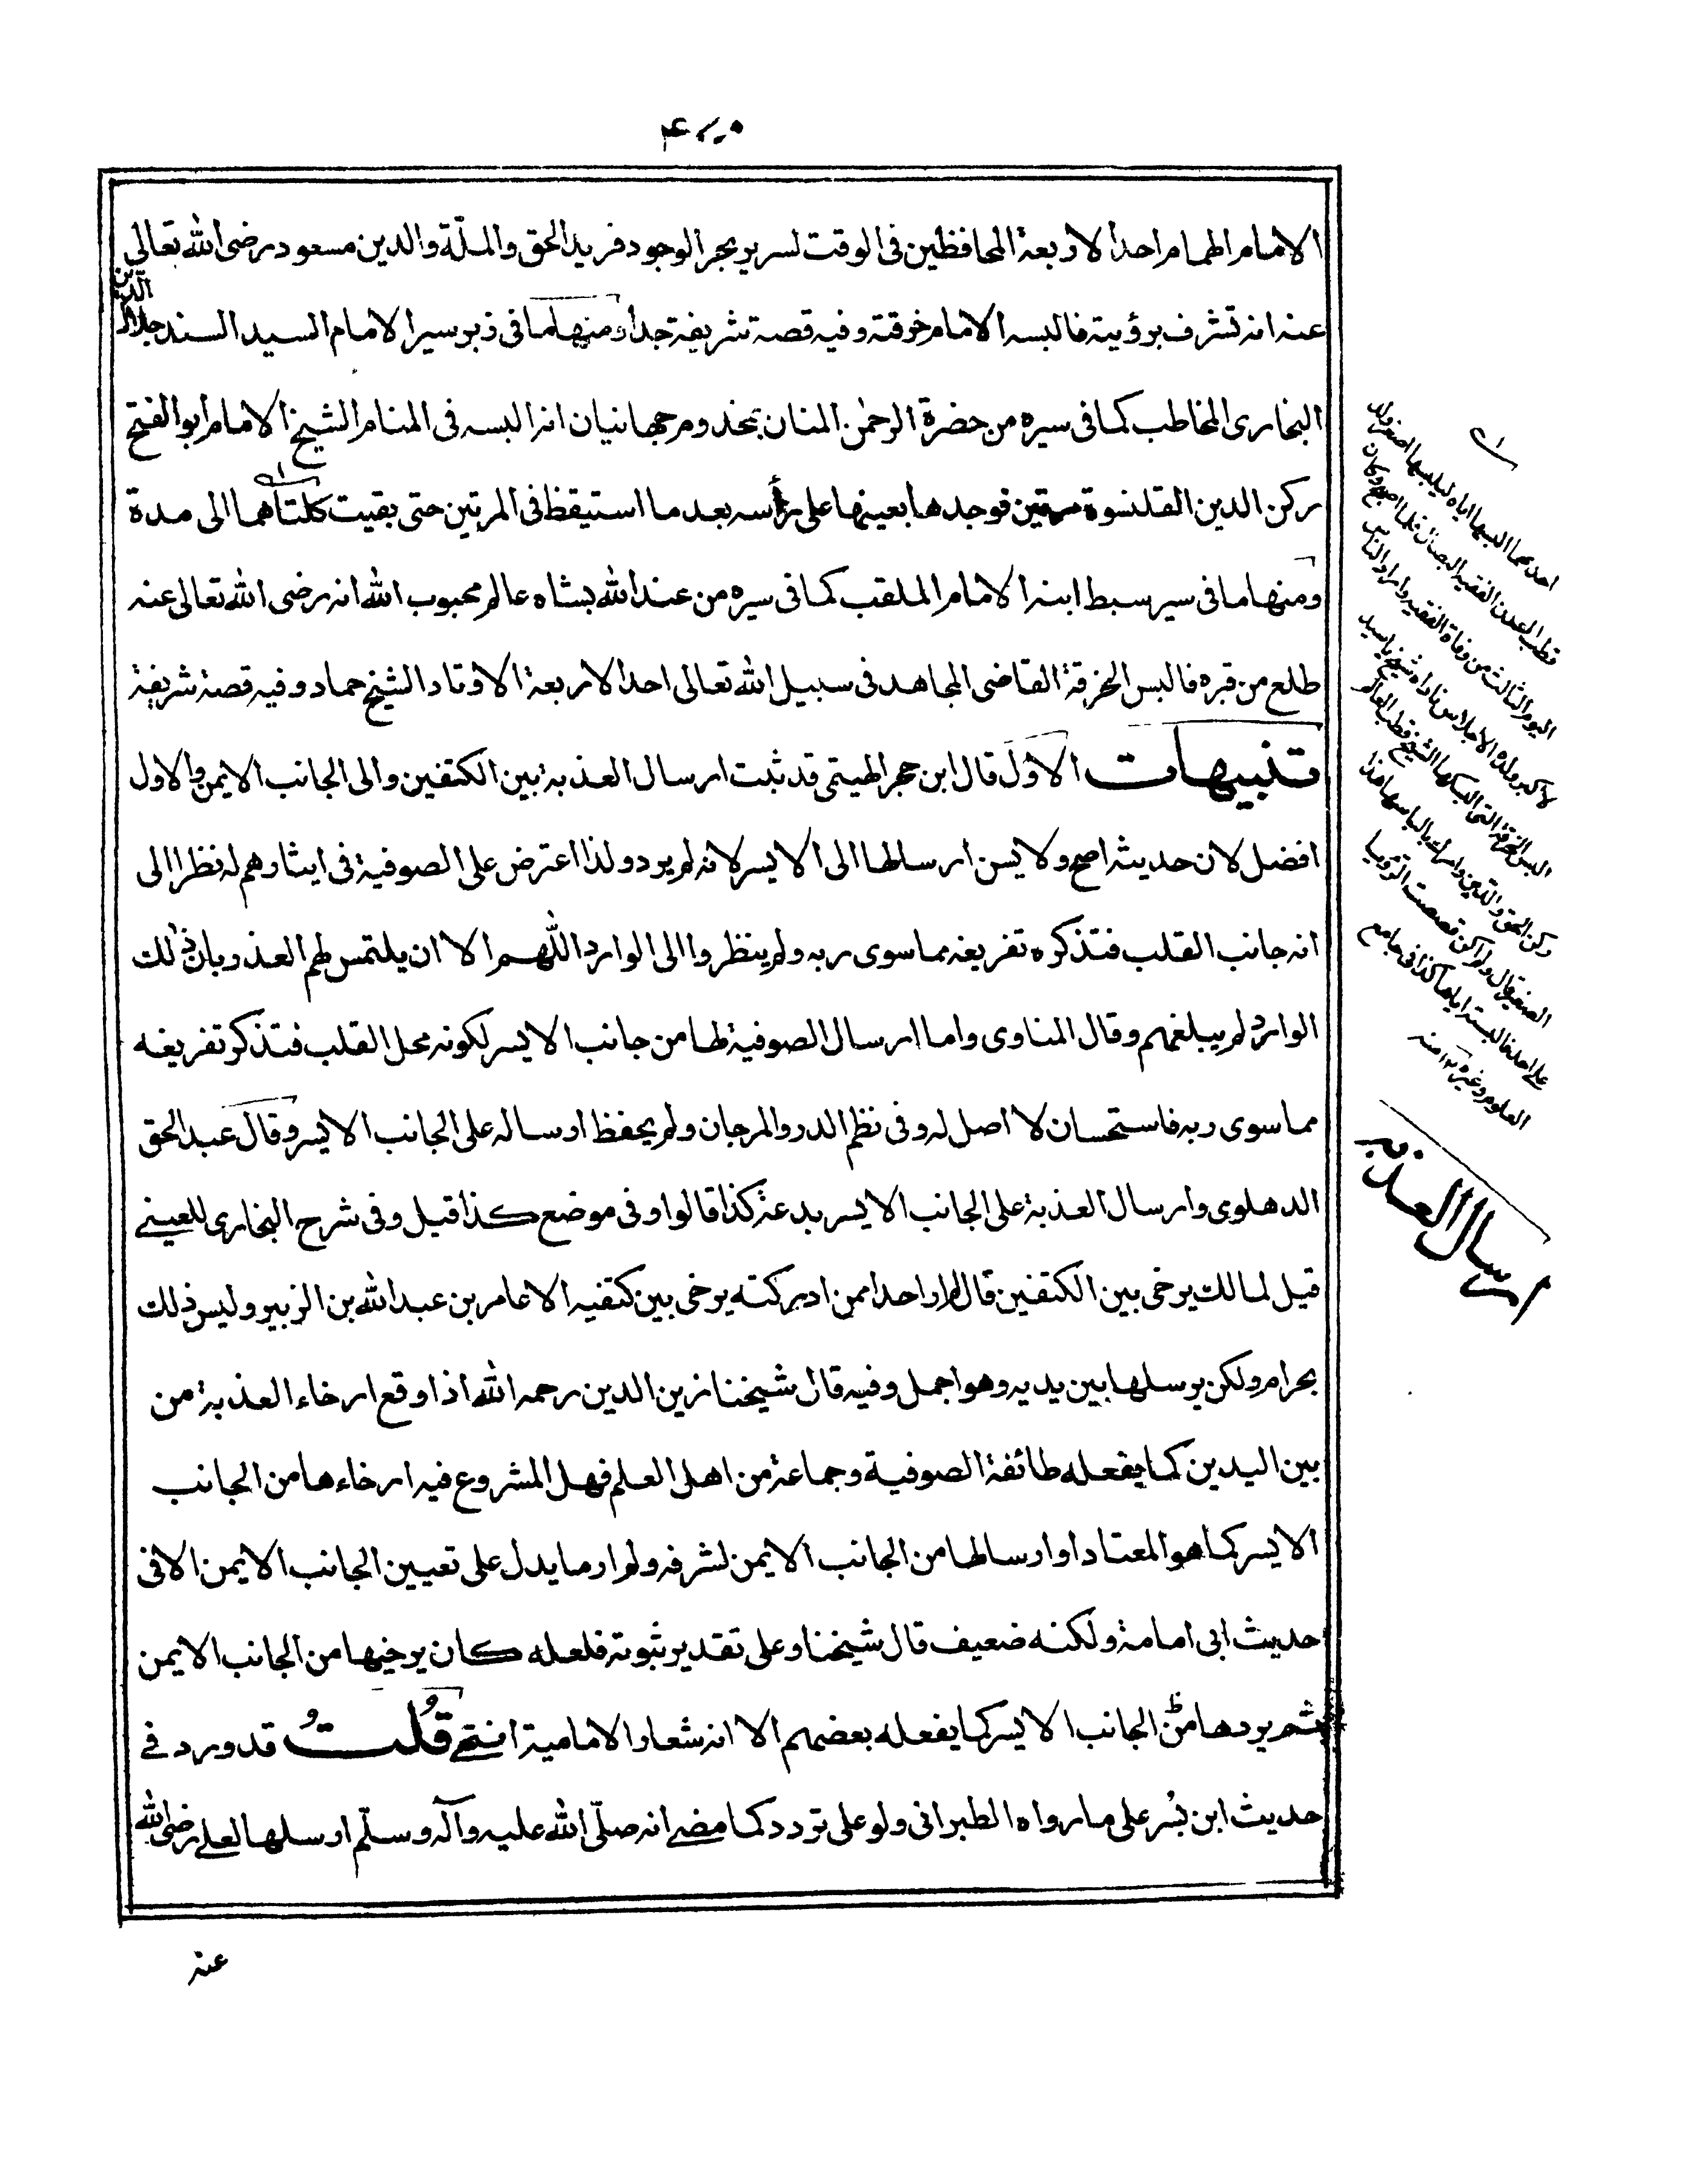 الامام الهمام احد الاربعة المحافظين فى الوقت لسرير بحر الوجود فريد الحق والملّة والدين مسعود رضى الله تعالى
عنه انه تشرف برؤيته فالبسه الامام خرقته وفيه قصة شريفة جدا ومنها ما فى زبر سير الامام السيد السند جلال الدين
البخارى المخاطب كما فى سيره من حضرة الرحمٰن المنان بمخدوم جهانيان انه البسه فى المنام الشيخ الامام ابو الفتح
ركن الدين القلنسوة مرتين فوجدها بعينها على رأسه بعد ما استيقظ فى المرتين حتى بقيت كلتاهما الى مدة
ومنها ما فى سير سبط ابنه الامام الملقب كما فى سيره من عند الله بشاه عالم محبوب الله انه رضى الله تعالى عنه
طلع من قبره فالبس الخرقة القاضى المجاهد فى سبيل الله تعالى احد الاربعة الاوتاد الشيخ حماد وفيه قصة شريفة
تنبيهات الاوّل قال ابن حجر الهيتمى قد ثبت ارسال العذبة بين الكتفين والى الجانب الايمن والاول
افضل لان حديثه اصح ولا يسن ارسالها الى الايسر لانه لم يرد ولذا اعترض على الصوفية فى ايثارهم له نظرا الى
انه جانب القلب فتذكره تفريغه مما سوى ربه ولم ينظروا الى الوارد اللّهم الا ان يلتمس لهم العذر وبان ذٰلك
الوارد لم يبلغهم وقال المناوى واما ارسال الصوفية لها من جانب الايسر لكونه محل القلب فتذكر تفريغه
مما سوى ربه فاستحسان لا اصل له وفى نظم الدر والمرجان ولم يحفظ ارساله على الجانب الايسر وقال عبد الحق
الدهلوى وارسال العذبة على الجانب الايسر بدعة كذا قالوا وفى موضع كذا قيل وفى شرح البخارى للعينے
قيل لمالك يرخى بين الكتفين قال لم ار احدا ممن ادركته يرخى بين كتفيه الا عامر بن عبد الله بن الزبير وليس ذلك
بحرام ولكن يرسلها بين يديه وهو اجمل وفيه قال شيخنا زين الدين رحمه الله اذا وقع ارخاء العذبة من
بين اليدين كما يفعله طائفة الصوفية وجماعة من اهل العلم فهل المشروع فيه ارخاءها من الجانب
الايسر كما هو المعتاد او ارسالها من الجانب الايمن لشرفه ولم ار ما يدل على تعيين الجانب الايمن الا فى
حديث ابى امامة ولكنه ضعيف قال شيخنا وعلى تقدير ثبوته فلعله كان يرخيها من الجانب الايمن
ثم يردها من الجانب الايسر كما يفعله بعضهم الا انه شعار الامامية انتهے قُلتُ قد ورد فے
حديث ابن بُسر على ما رواه الطبرانى ولو على تردد كما مضے انه صلّى الله عليه وآله وسلّم ارسلها لعلے رضى الله
عنه
احدهما البسها اياه ليلبسها اصغر ولد
اليوم الثالث من وفاة الفقيه
العلوم وغيره ١٢ منه
ارسال العذبة